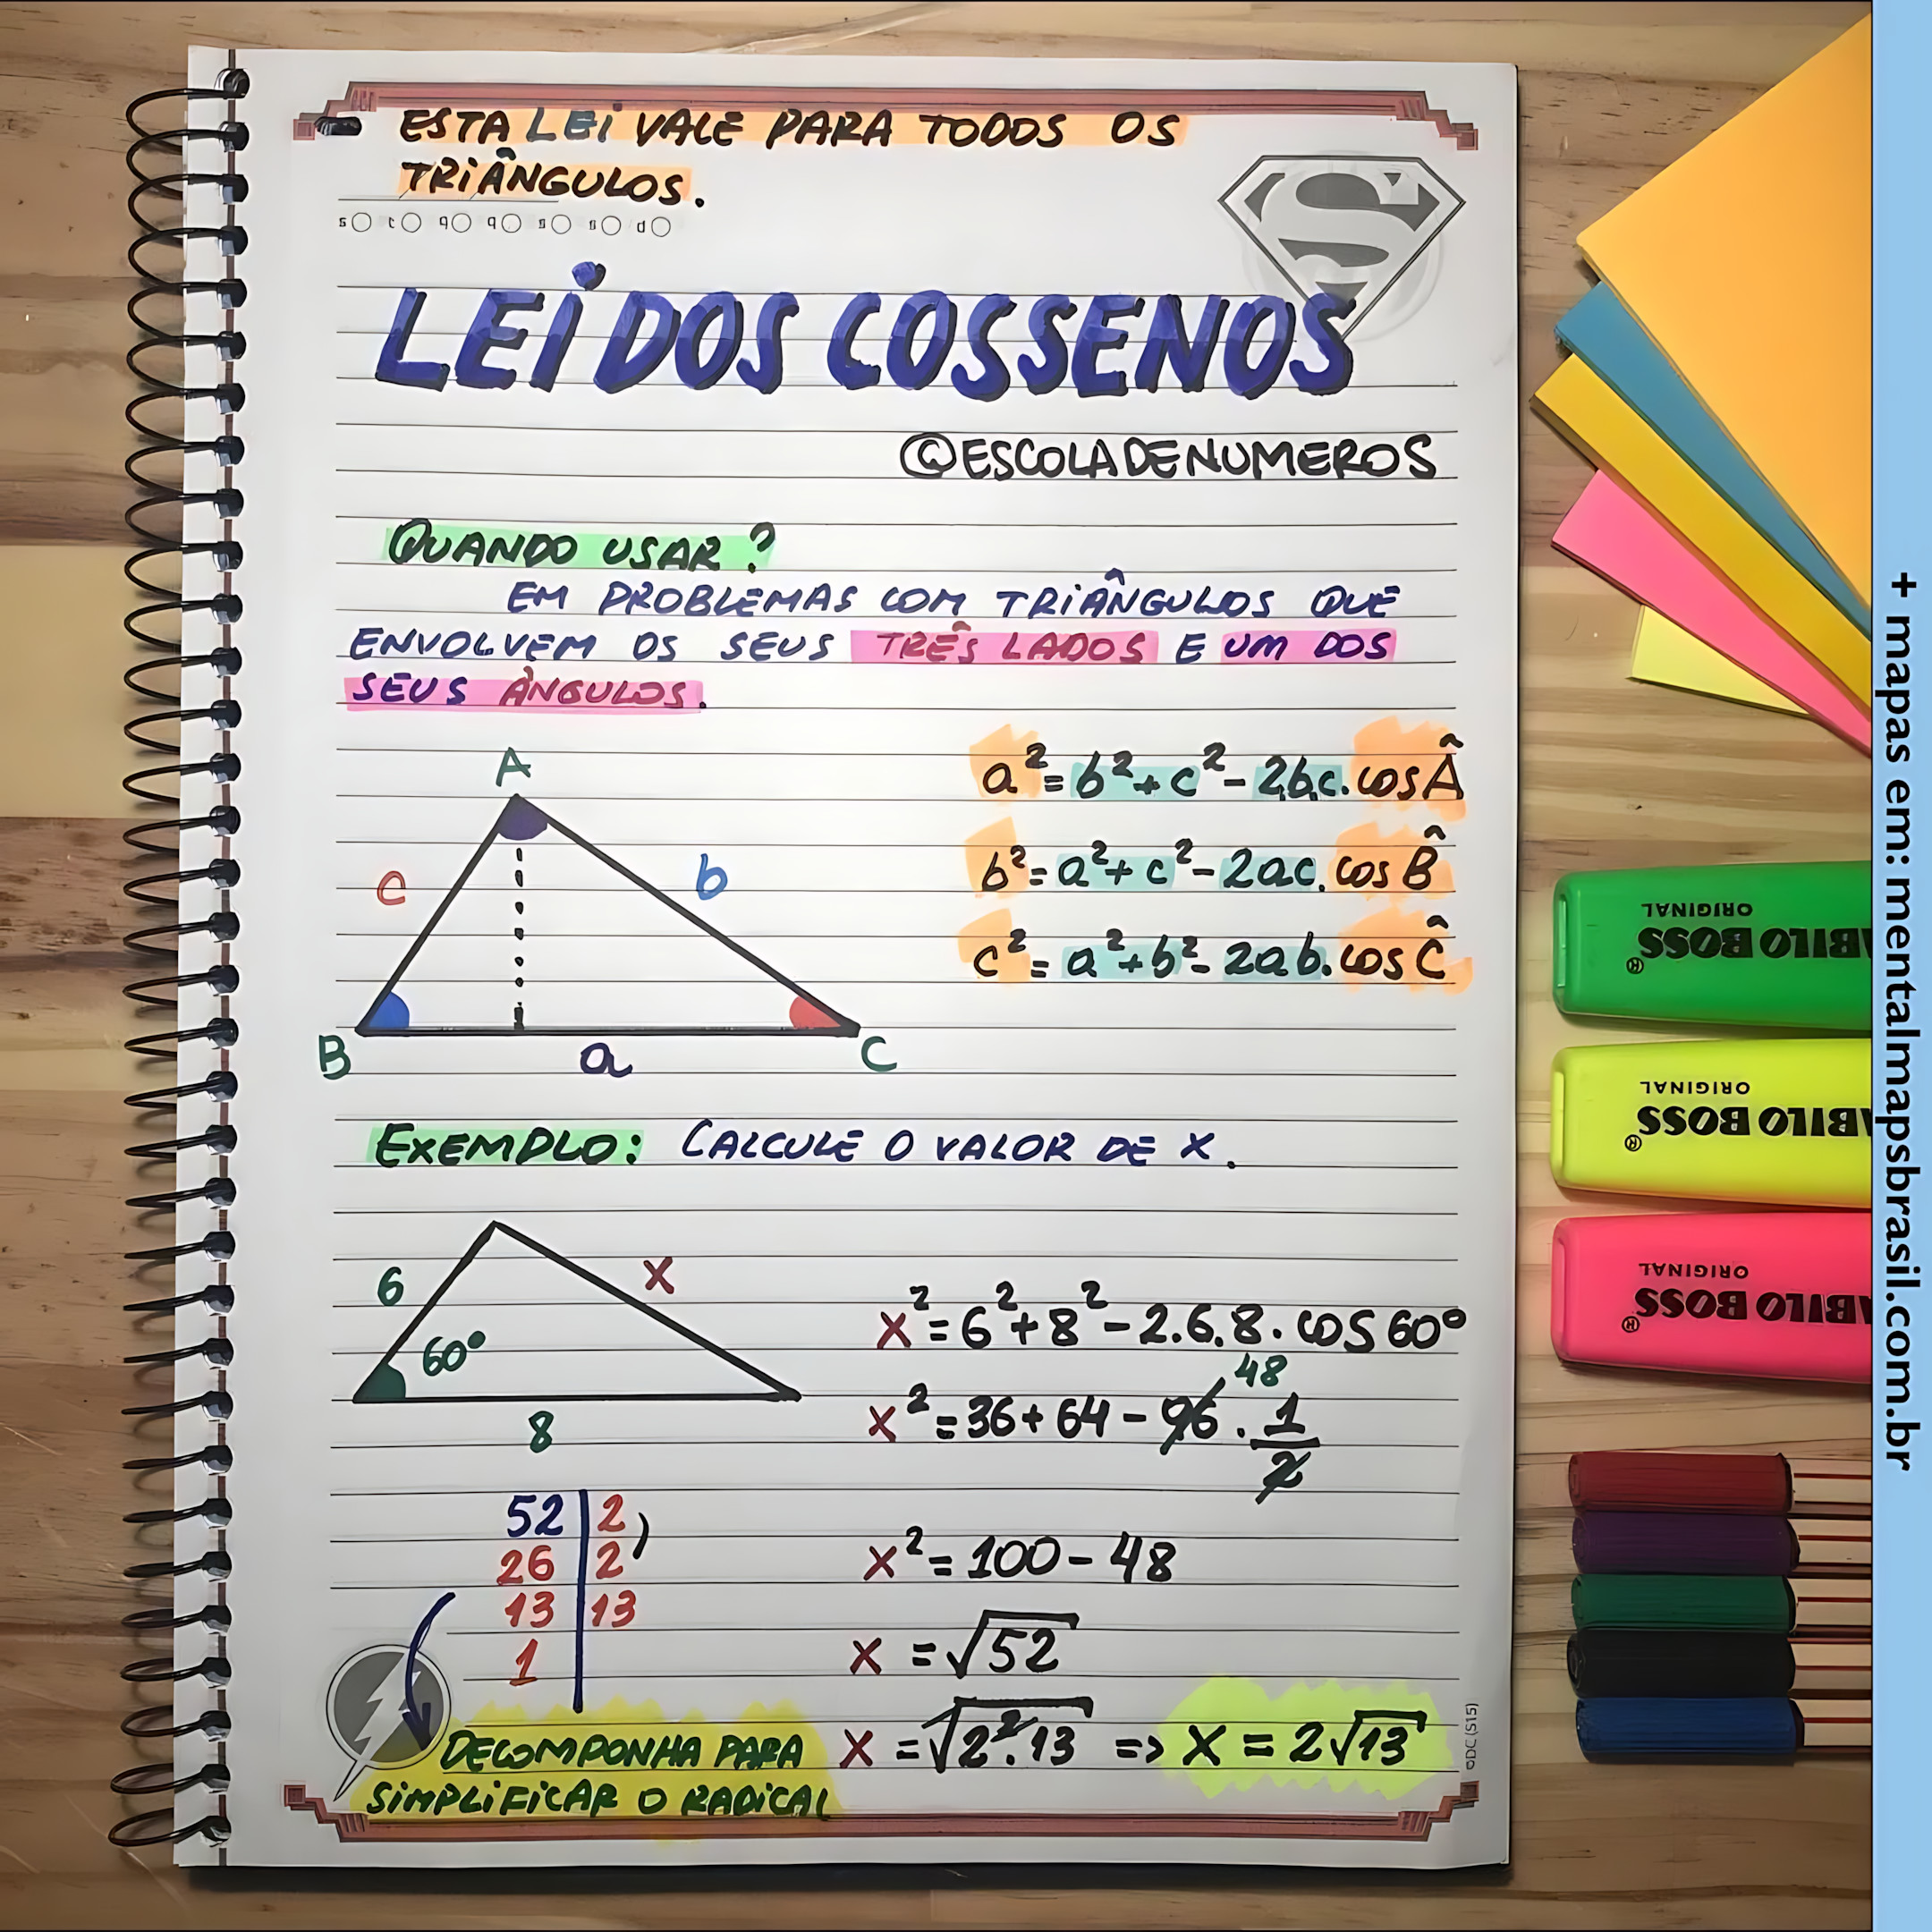 ESTA LEI VALE PARA TODOS OS
TRIÂNGULOS.
s t q q s s d
LEI DOS COSSENOS
@ESCOLADENUMEROS
QUANDO USAR?
EM PROBLEMAS COM TRIÂNGULOS QUE
ENVOLVEM OS SEUS TRÊS LADOS E UM DOS
SEUS ÂNGULOS.
A
c
b
B
a
C
a² = b² + c² - 2.b.c. cos Â
b² = a² + c² - 2ac. cos B̂
c² = a² + b² - 2ab. cos Ĉ
EXEMPLO: CALCULE O VALOR DE X.
6
x
60°
8
x² = 6² + 8² - 2.6.8. cos 60°
48
x² = 36 + 64 - 96 . 1/2
52 | 2
26 | 2
13 | 13
1
x² = 100 - 48
x = √52
x = √2².13 => x = 2√13
DECOMPONHA PARA
SIMPLIFICAR O RADICAL
©DC (S15)
ABILO BOSS®
ORIGINAL
ABILO BOSS®
ORIGINAL
ABILO BOSS®
ORIGINAL
+ mapas em: mentalmapsbrasil.com.br